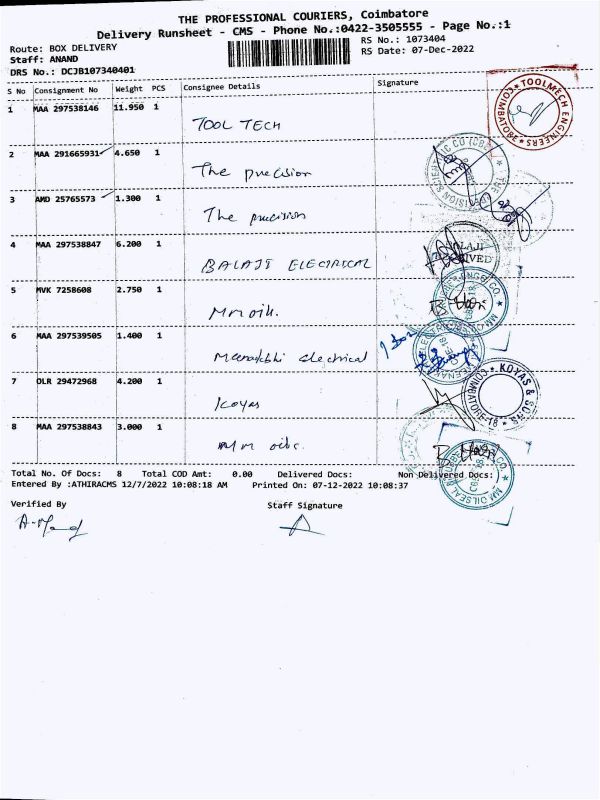 THE PROFESSIONAL COURIERS, Coimbatore
Delivery Runsheet - CMS - Phone No.:0422-3505555 - Page No.:1
Route: BOX DELIVERY
RS No.: 1073404
Staff: ANAND
RS Date: 07-Dec-2022
DRS No.: DCJB107340401
S No Consignment No Weight PCS Consignee Details Signature
1 MAA 297538146 11.950 1 TOOL TECH
TOOLMECH ENGINEERS COIMBATORE
2 MAA 291665931 4.650 1 The precision
3 AMD 25765573 1.300 1 The precision
4 MAA 297538847 6.200 1 BALAJI ELECTRICAL
BALAJI
5 MVK 7258608 2.750 1 Mm oil.
6 MAA 297539505 1.400 1 Meenakshi electrical
7 OLR 29472968 4.200 1 Koyas
KOYAS & SONS COIMBATORE-18
8 MAA 297538843 3.000 1 mm oils.
MM OILSEAL & RUBBER
Total No. Of Docs: 8 Total COD Amt: 0.00 Delivered Docs: Non Delivered Docs:
Entered By :ATHIRACMS 12/7/2022 10:08:18 AM Printed On: 07-12-2022 10:08:37
Verified By Staff Signature